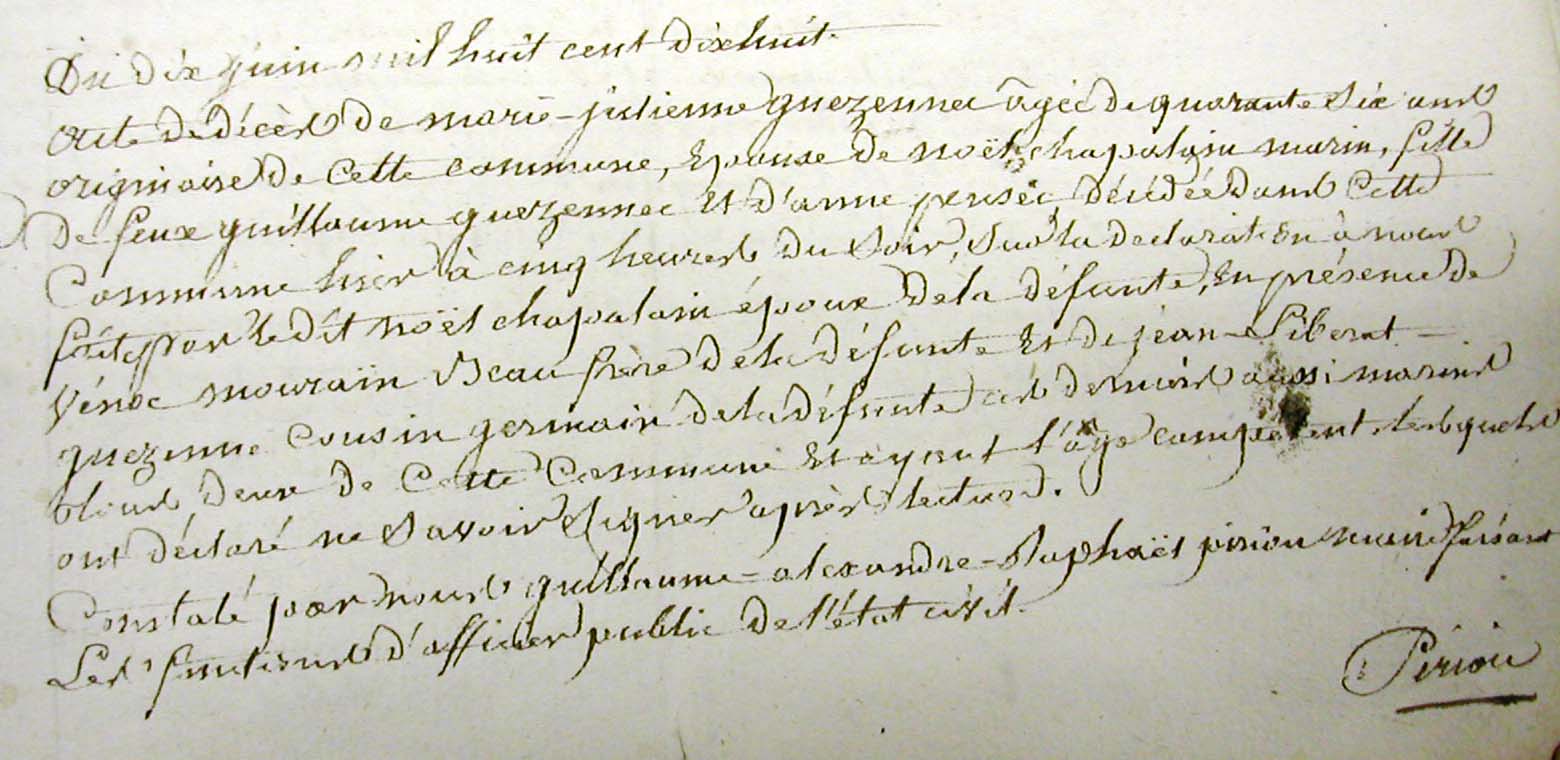 Du dix juin mil huit cent dixhuit.
acte de décès de marie-julienne guezennec âgée de quarante six ans
originaire de cette commune, Epouse de noël chapalain marin, fille
De feux guillaume guezennec Et d'anne décédée dans cette
Commune hier à cinq heures du soir, sur la declaration à nous
faite par le dit noël chapalain époux de la défunte, En présence de
vénoc mourain Beau frère de la défunte Et de jean-Liberat-
guezennec Cousin germain de la défunte ces derniers aussi marins
tous deux de Cette Commune Et ayant l'âge competent lesquels
ont déclaré ne savoir signer après lecture.
Constaté par nous guillaume-alexandre-Raphaël piriou maire faisant
Les fonctions d'officier public de l'état civil.
Piriou